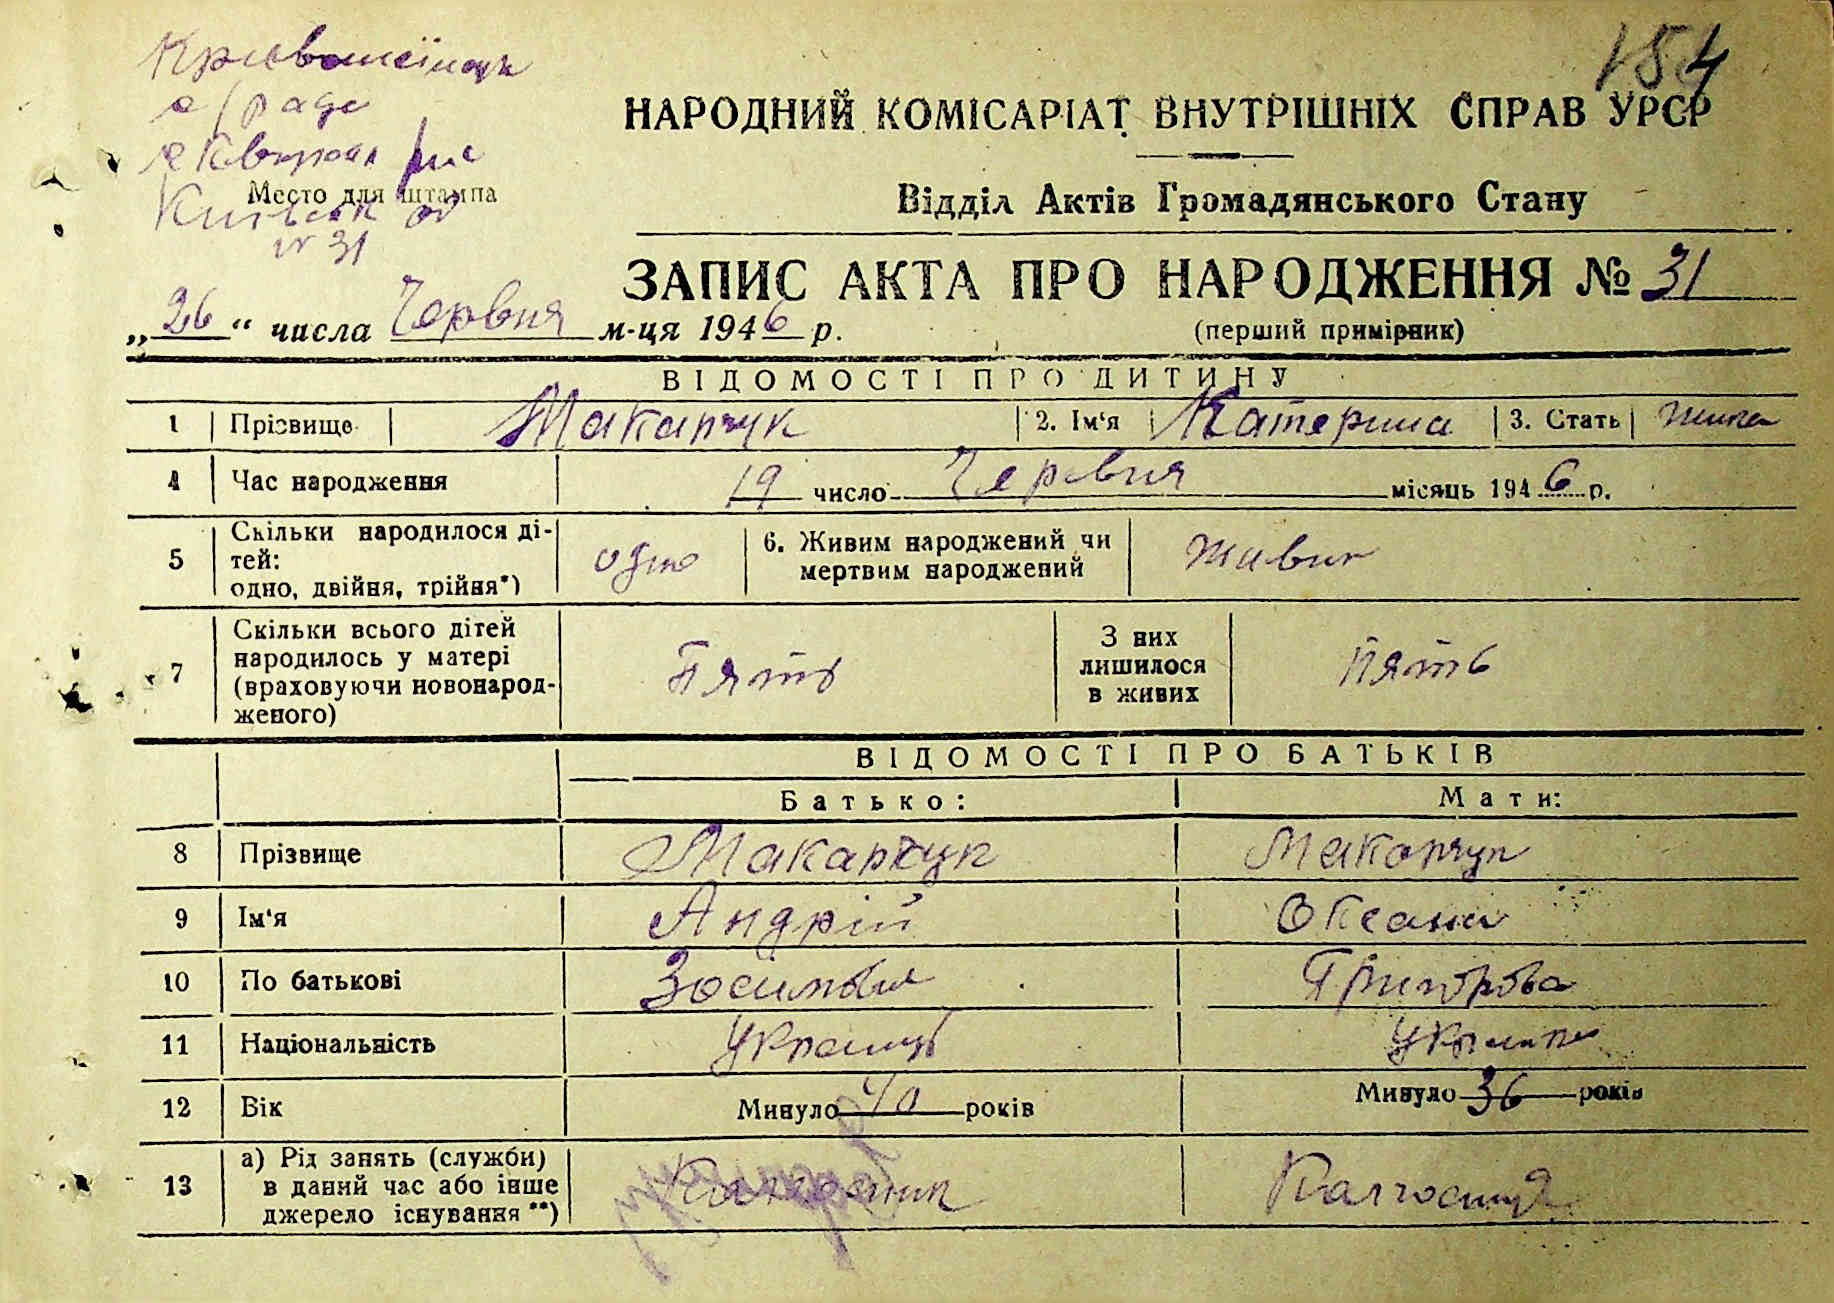 154
с/рада
Київськ об
№ 31
Место для штампа
НАРОДНИЙ КОМІСАРІАТ ВНУТРІШНІХ СПРАВ УРСР
Відділ Актів Громадянського Стану
ЗАПИС АКТА ПРО НАРОДЖЕННЯ № 31
„26“ числа Червня м-ця 1946 р.
(перший примірник)
ВІДОМОСТІ ПРО ДИТИНУ
1 Прізвище Макарчук 2. Ім‘я Катерина 3. Стать жінка
4 Час народження 19 число Червня місяць 1946 р.
5 Скільки народилося ді-
тей:
одно, двійня, трійня*) одно
6. Живим народжений чи
мертвим народжений живим
7 Скільки всього дітей
народилось у матері
(враховуючи новонарод-
женого) Пять
З них
лишилося
в живих Пять
ВІДОМОСТІ ПРО БАТЬКІВ
Батько: Мати:
8 Прізвище Макарчук Макарчук
9 Ім‘я Андрій Оксана
10 По батькові Зосимович Григорова
11 Національність Українец Українка
12 Вік Минуло 40 років Минуло 36 років
13 а) Рід занять (служби)
в даний час або інше
джерело існування **) Колгоспник Колгоспниця